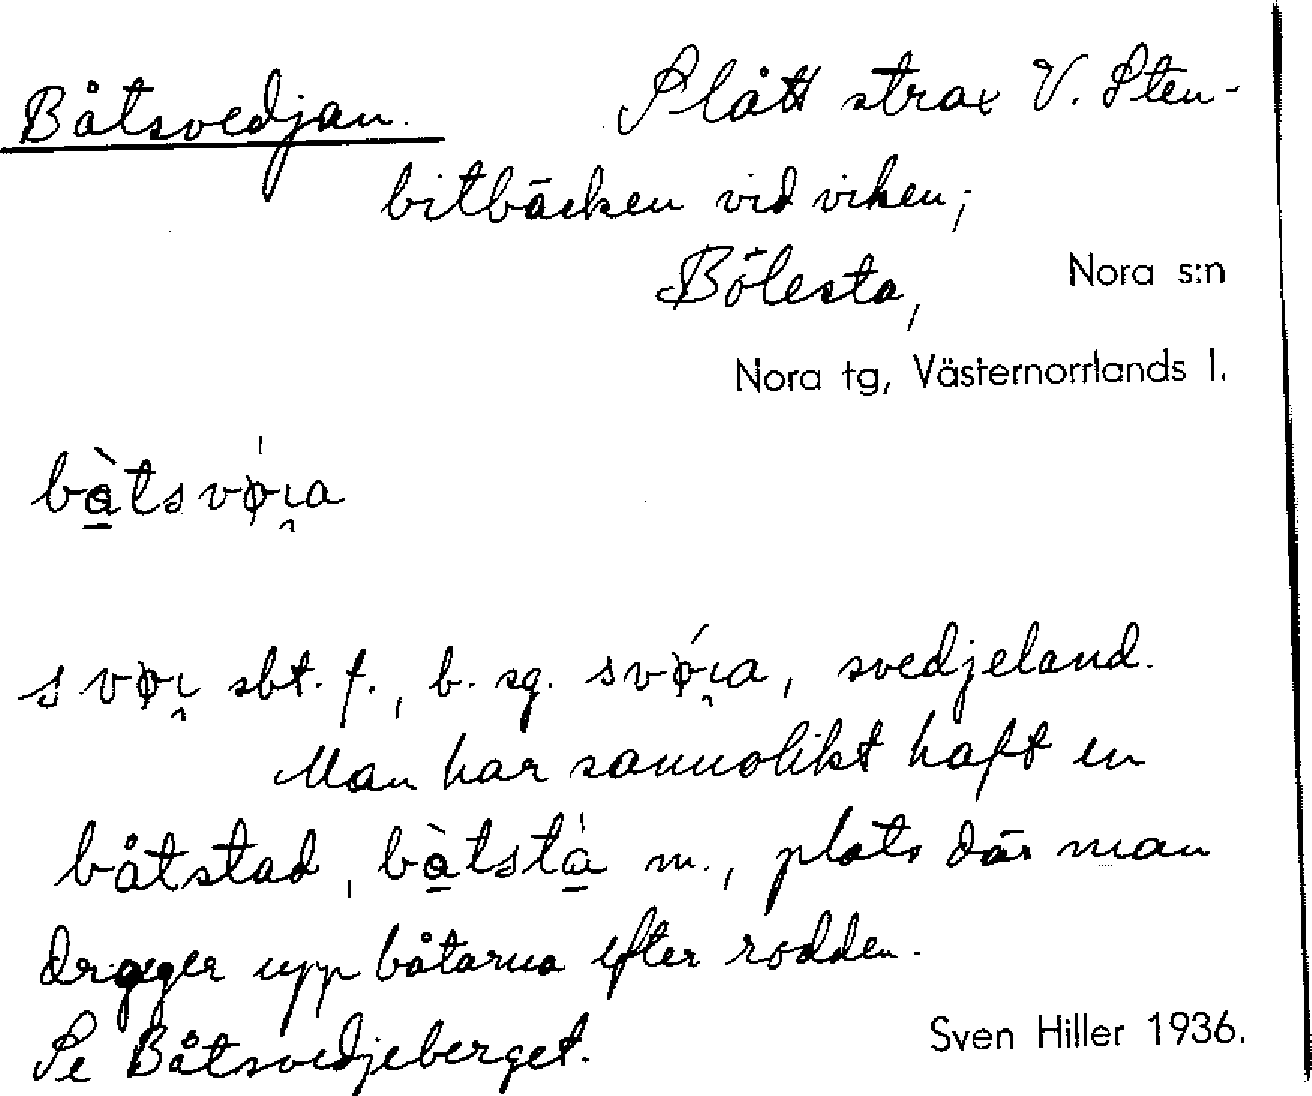 Båtsvedjan. Slått strax V. Sten-
bitbäcken vid viken;
Bölesta, Nora s:n
Nora tg, Västernorrlands l.
bɑ̱̀tsvǿɩ̯a
svøɩ̯ sbt. f., b. sg. svǿɩ̯a, svedjeland.
Man har sannolikt haft en
båtstad, bɑ̱̀tstɑ̱̍ m., plats där man
drager upp båtarna efter rodden.
Se Båtsvedjeberget. Sven Hiller 1936.